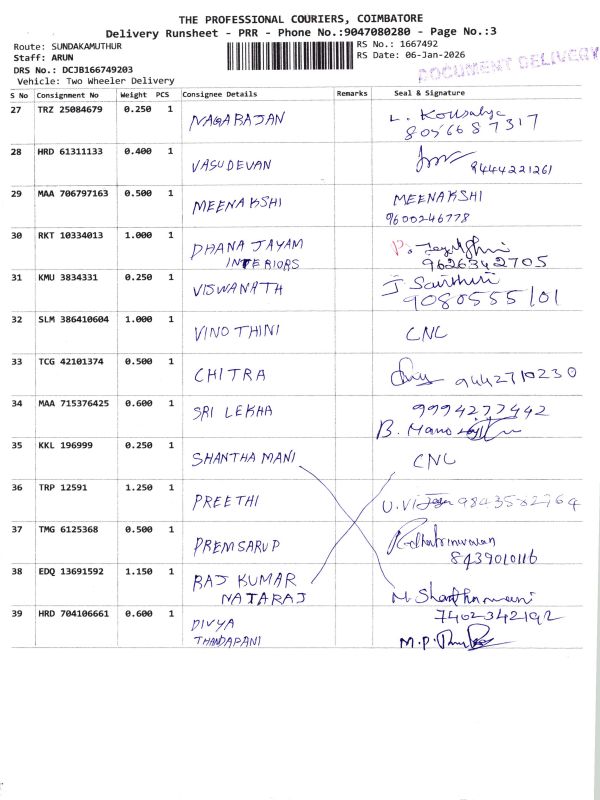 THE PROFESSIONAL COURIERS, COIMBATORE
Delivery Runsheet - PRR - Phone No.:9047080280 - Page No.:3
Route: SUNDAKAMUTHUR
RS No.: 1667492
Staff: ARUN
RS Date: 06-Jan-2026
DRS No.: DCJB166749203
Vehicle: Two Wheeler Delivery
DOCUMENT DELIVERY
S No Consignment No Weight PCS Consignee Details Remarks Seal & Signature
27 TRZ 25084679 0.250 1 NAGARAJAN L. Kousalya
8056687317
28 HRD 61311133 0.400 1 VASUDEVAN 9444221261
29 MAA 706797163 0.500 1 MEENAKSHI MEENAKSHI
9600246778
30 RKT 10334013 1.000 1 DHANAJAYAM
INTERIORS 9626342705
31 KMU 3834331 0.250 1 VISWANATH
9080555101
32 SLM 386410604 1.000 1 VINOTHINI CNC
33 TCG 42101374 0.500 1 CHITRA 9442710230
34 MAA 715376425 0.600 1 SRI LEKHA 9994277442
B. Mano
35 KKL 196999 0.250 1 SHANTHAMANI CNC
36 TRP 12591 1.250 1 PREETHI 9843582764
37 TMG 6125368 0.500 1 PREMSARUP
8439010116
38 EDQ 13691592 1.150 1 RAJ KUMAR
NATARAJ M. Shanthamani
7402342192
39 HRD 704106661 0.600 1 DIVYA
THANDAPANI M.P.